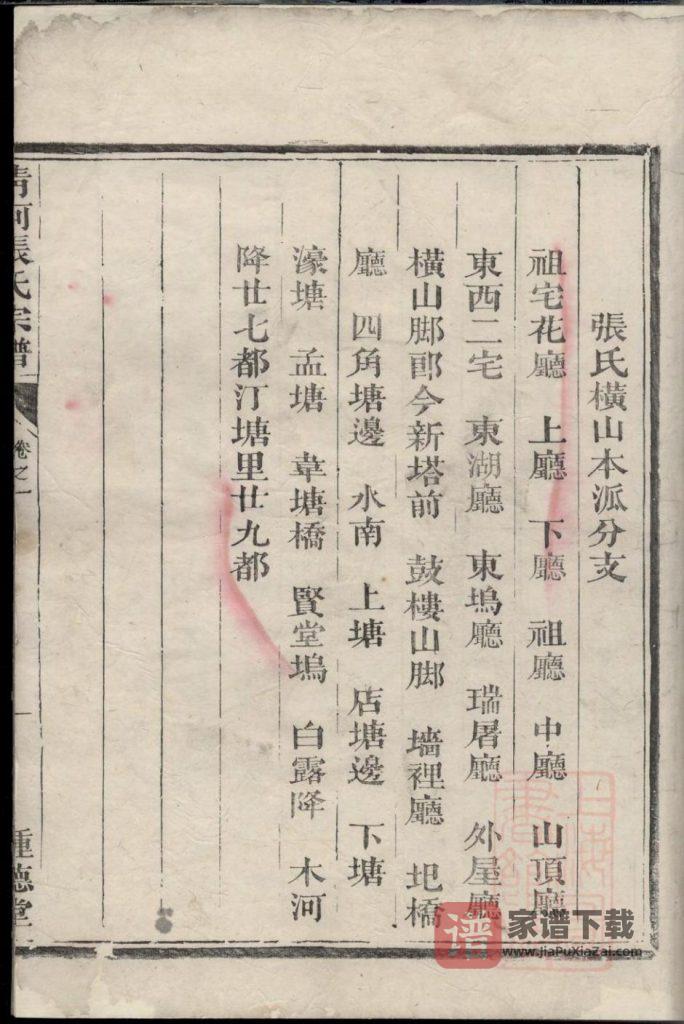 張氏橫山本派分支
祖宅花廳 上廳 下廳 祖廳 中廳 山頂廳
東西二宅 東湖廳 東塢廳 瑞屠廳 外屋廳
橫山脚郎今新塔前 鼓樓山脚 墻裡廳 圯橋
廳 四角塘邊 水南 上塘 店塘邊 下塘
濠塘 孟塘 葦塘橋 賢堂塢 白露降 木河
降廿七都汀塘里廿九都
清河張氏宗譜 卷之一 一 種德堂
谱 家谱下载
www.jiaPuXiaZai.com